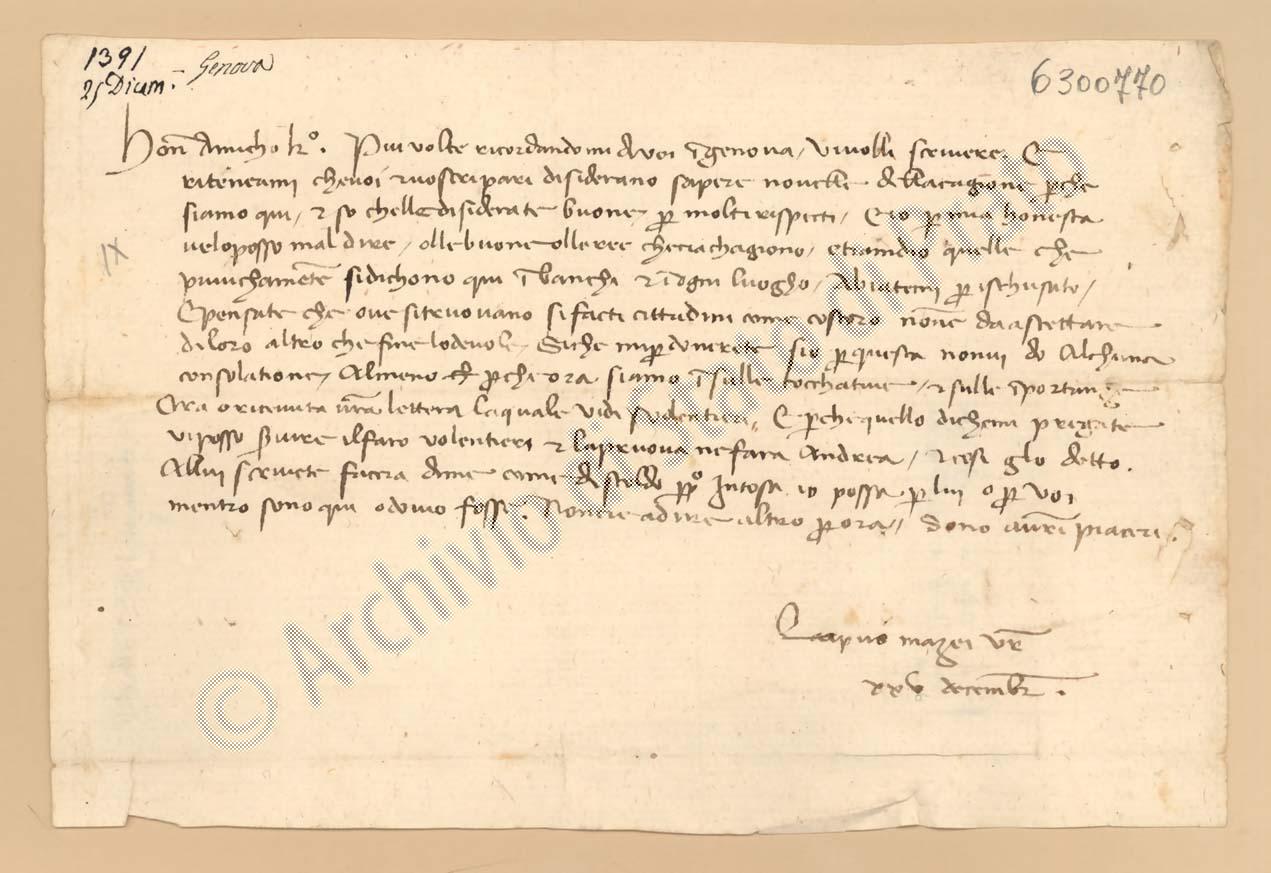 1391
25 Dicem. Genova
6300770
IX
Hon Amicho kr̄o. Piu volte ricordandomi di voi i genova / vi volli scrivere. E
ritenemi che voi e vostri pari disiderano sapere novelle della cagione p che
siamo qui / & so chelle disiderate buone p molti rispetti / E io p mia honesta
ve lo posso mal dire / o lle buone o lle ree che cia chagiono / etiamdio quelle che
piuvichamēte si dichono qui i banchi & i ogni luogho / Abiatemi p ischusato /
E pensate che ove si truovano si facti cittadini come costoro non e da aspettare
di loro altro che fine lodevole. Siche mi pdonerete sio p questa non vi do alchuna
consolatione / Almeno p che ora siamo i sulle tocchature / & sulle
Ora o ricevuta vr̄a lettera la quale vidi volentieri / E p che quello di che mi pregate
vi posso svire il faro volentieri & la pruova ne fara Andrea / & cosi glo detto.
A llui scrivete faccia di me come di Stoldo pp̄o Intosa io possa p lui o p voi
mentro sono qui o dovio fosse. Non ci e a dire altro p ora / Sono a vr̄i piaceri.
Lapus mazei vr̄
xxv decembr̄.
© Archivio di Stato di Prato